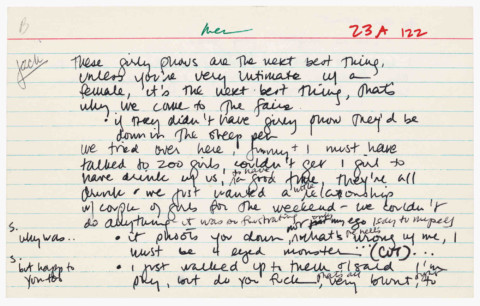 B
men
23A 122
Jack
These girly shows are the next best thing,
unless you're very intimate w/ a
female, it's the next best thing, thats
why we come to the fairs.
• if they didn't have girly show they'd be
down in the sheep pen
we tried over here, Jimmy + I must have
talked to 200 girls, couldn't get 1 girl to
have drink w/ us, to have a good time, they're all
drunk + we just wanted a whole relationship
w/ couple of girls for the weekend - we couldn't
do anything - it was so frustrating my ego I say to myself
S.
why was..
• it shoots you down, what's the hells wrong w/ me, I
must be 4 eyed monster...(CUT)...
S.
but happy to
you too
• I just walked up to them + I said I'm
shy, but do you fuck, thats all very blunt, to